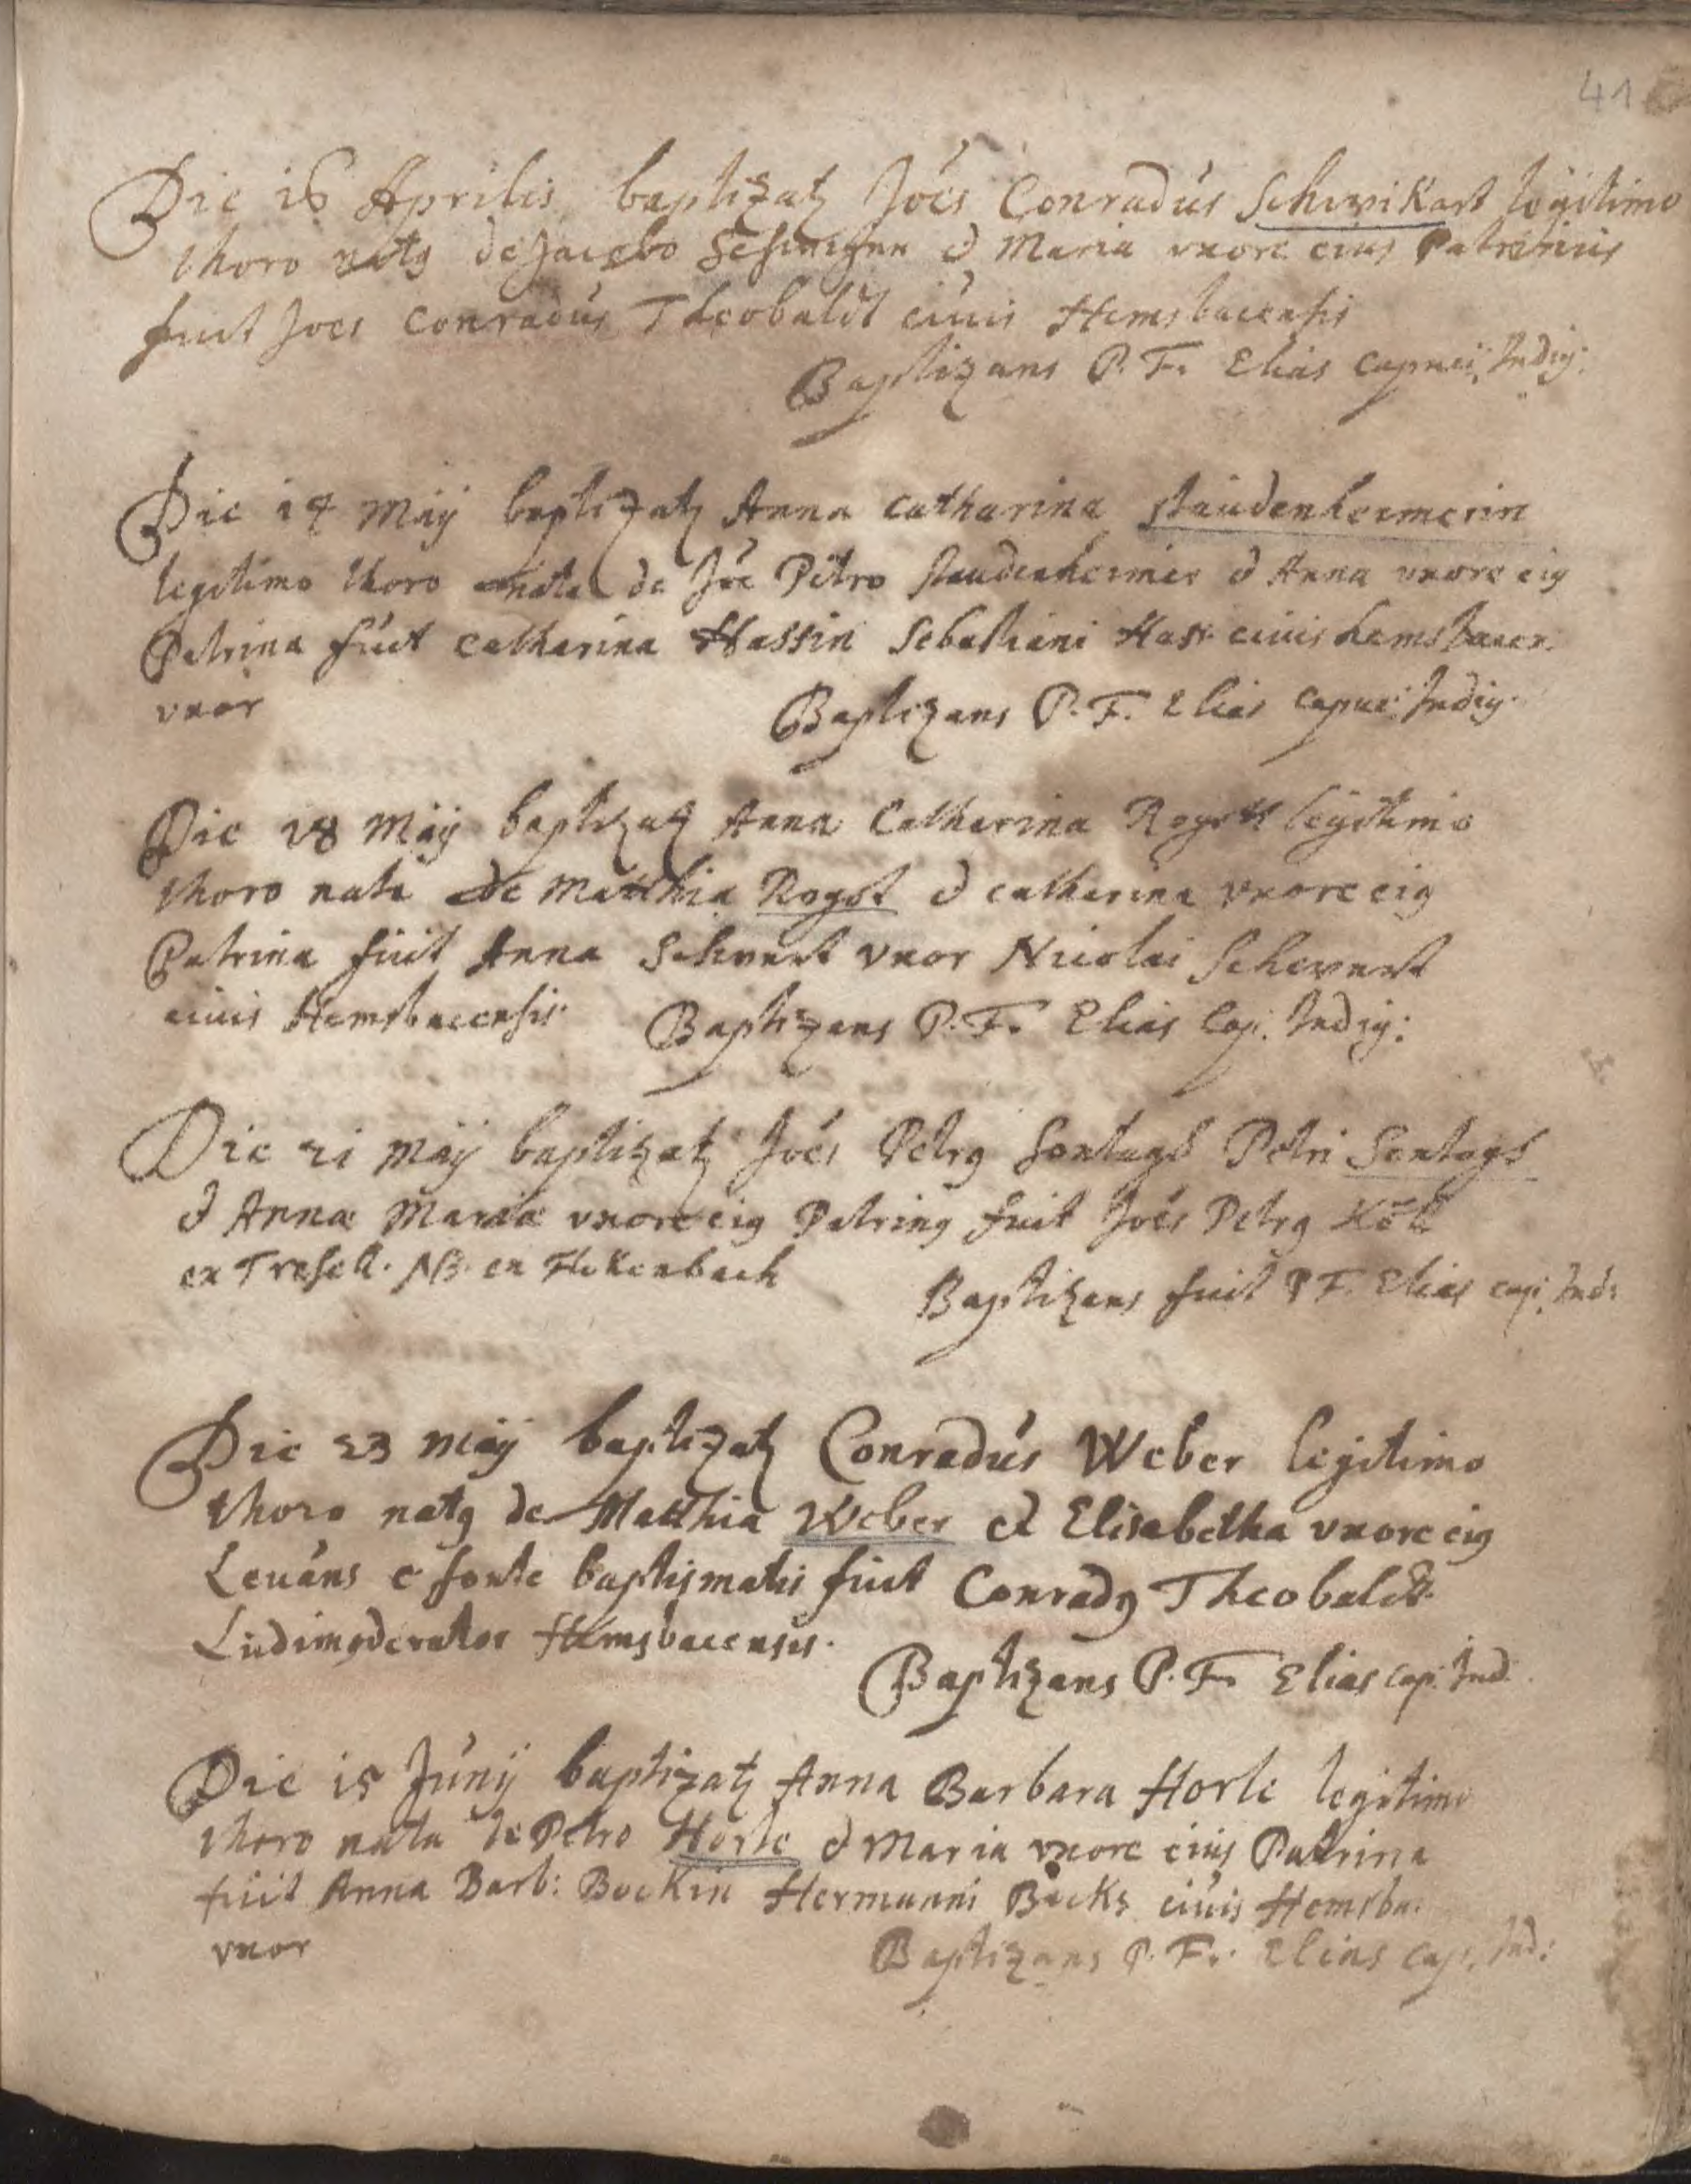 41
Die 16 Aprilis baptizatq Jóes Conradús Schwikart legitimo
thoro natq de Jacobo & Maria uxore eius Patrinus
fuit Joes Conradús Theobaldt ciúis Hemsbacensis
Baptizans P. F. Elias Capuci: Indig:
Die 14 Maij baptizatq Anna Catharina staúdenheimerin
legitimo thoro nata de Jóe Petro staudenheimer & Anna uxore eiq
Patrina fúit Catharina Hassin Sebastiani Hass ciuis hemsbacen.
uxor
Baptizans P. F. Elias Capuc: Indig.
Die 18 Maij baptizatq Anna Catharina Rogst legitimo
thoro nata de Matthia Rogst & catharina uxore eiq
Patrina fuit Anna uxor Nicolai
ciuis Hemsbacensis. Baptizans P. F. Elias Cap. Indig:
Die 21 Maij baptizatq Jóes Petrq Sontags Petri Sontags
& Annæ Mariæ uxore eiq Patrinq fuit Jóes Petrq Köll
ex Tresell. NB. ex Flokenbach
Baptizans fuit P F. Elias cap: Ind:
Die 23 Maij baptizatq Conradús Weber legitimo
thoro natq de Matthia Weber et Elisabetha uxore eiq
Leuáns e fonte baptismatis fuit Conradq Theobaldt
Lúdimoderator Hemsbacensis.
Baptizans P. F. Elias cap: Ind.
Die 15 Júnij baptizatq Anna Barbara Horle legitimo
thoro nata de Petro Horle & Maria uxore eius Patrina
fúit Anna Barb: Bockin Hermanni Bocks ciúis Hemsba.
uxor
Baptizans P. F. Elias cap. Ind: